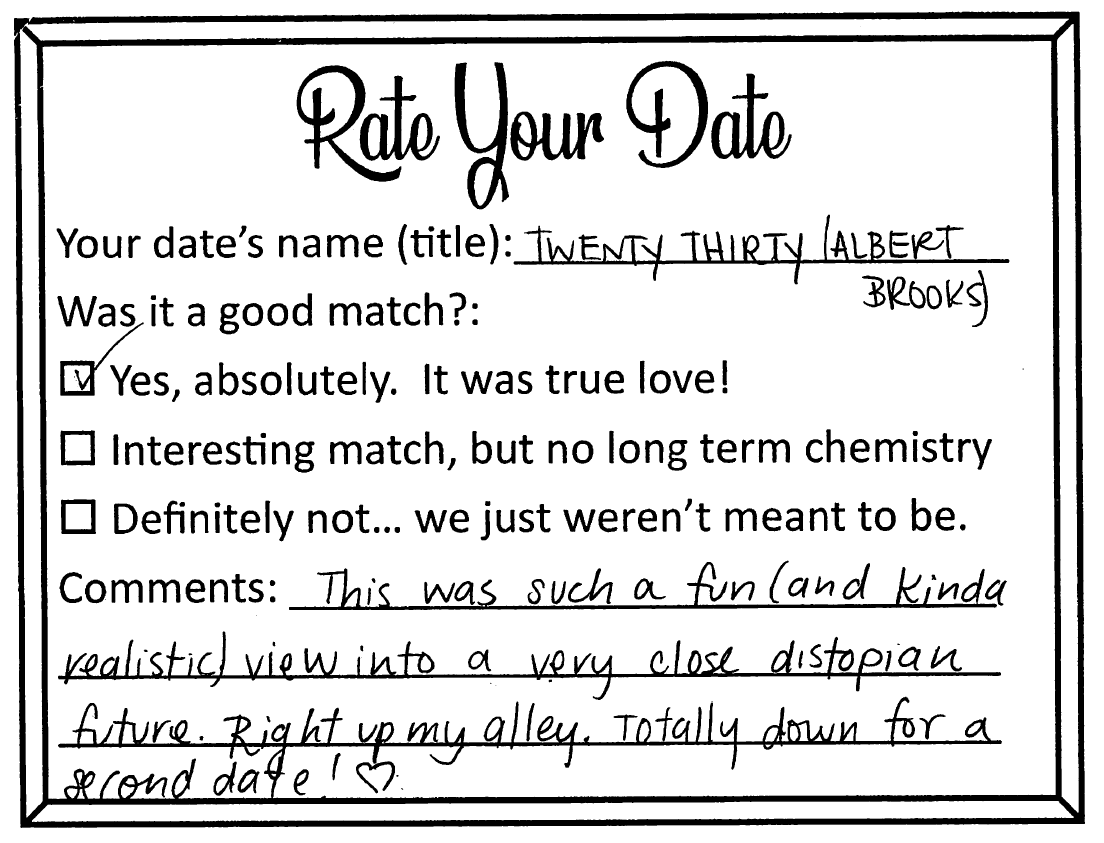 Rate Your Date
Your date's name (title): TWENTY THIRTY (ALBERT
BROOKS)
Was it a good match?:
☑ Yes, absolutely. It was true love!
☐ Interesting match, but no long term chemistry
☐ Definitely not... we just weren't meant to be.
Comments: This was such a fun (and kinda
realistic) view into a very close distopian
future. Right up my alley. Totally down for a
second date! ♡